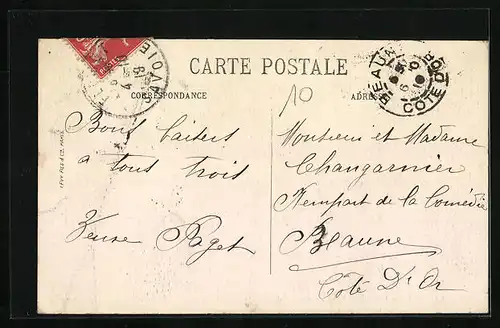 CARTE POSTALE
CORRESPONDANCE
ADRESSE
SAVOIE
BEAUNE
COTE D'OR
10
Bons baisers
à tous trois
Paget
Monsieur et Madame
Changarnier
Rempart de la Comédie
Beaune
Côte D'Or